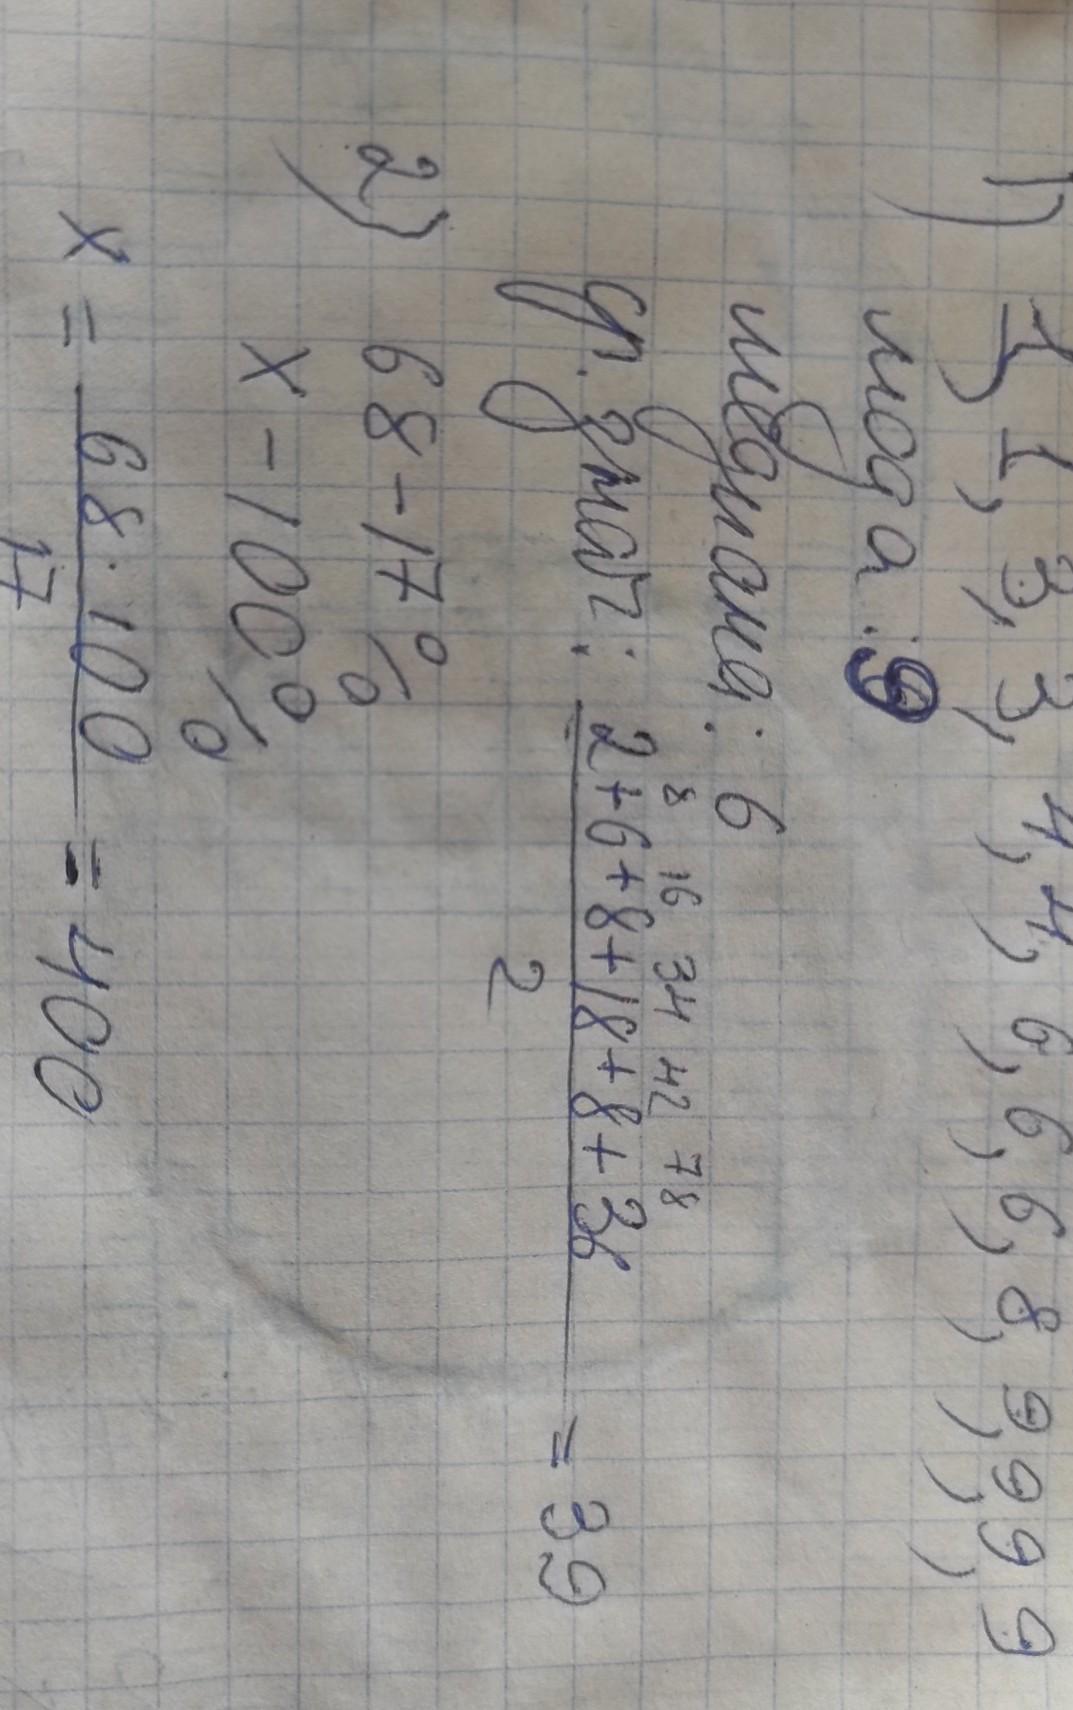 1) 1, 1, 3, 3, 4, 4, 6, 6, 6, 8, 9, 9, 9, 9
мода: 9
медиана: 6
8 16 34 42 78
ср. знач: 2+6+8+18+8+36 = 39
2
2) 68 - 17%
x - 100%
x = 68·100 = 400
17